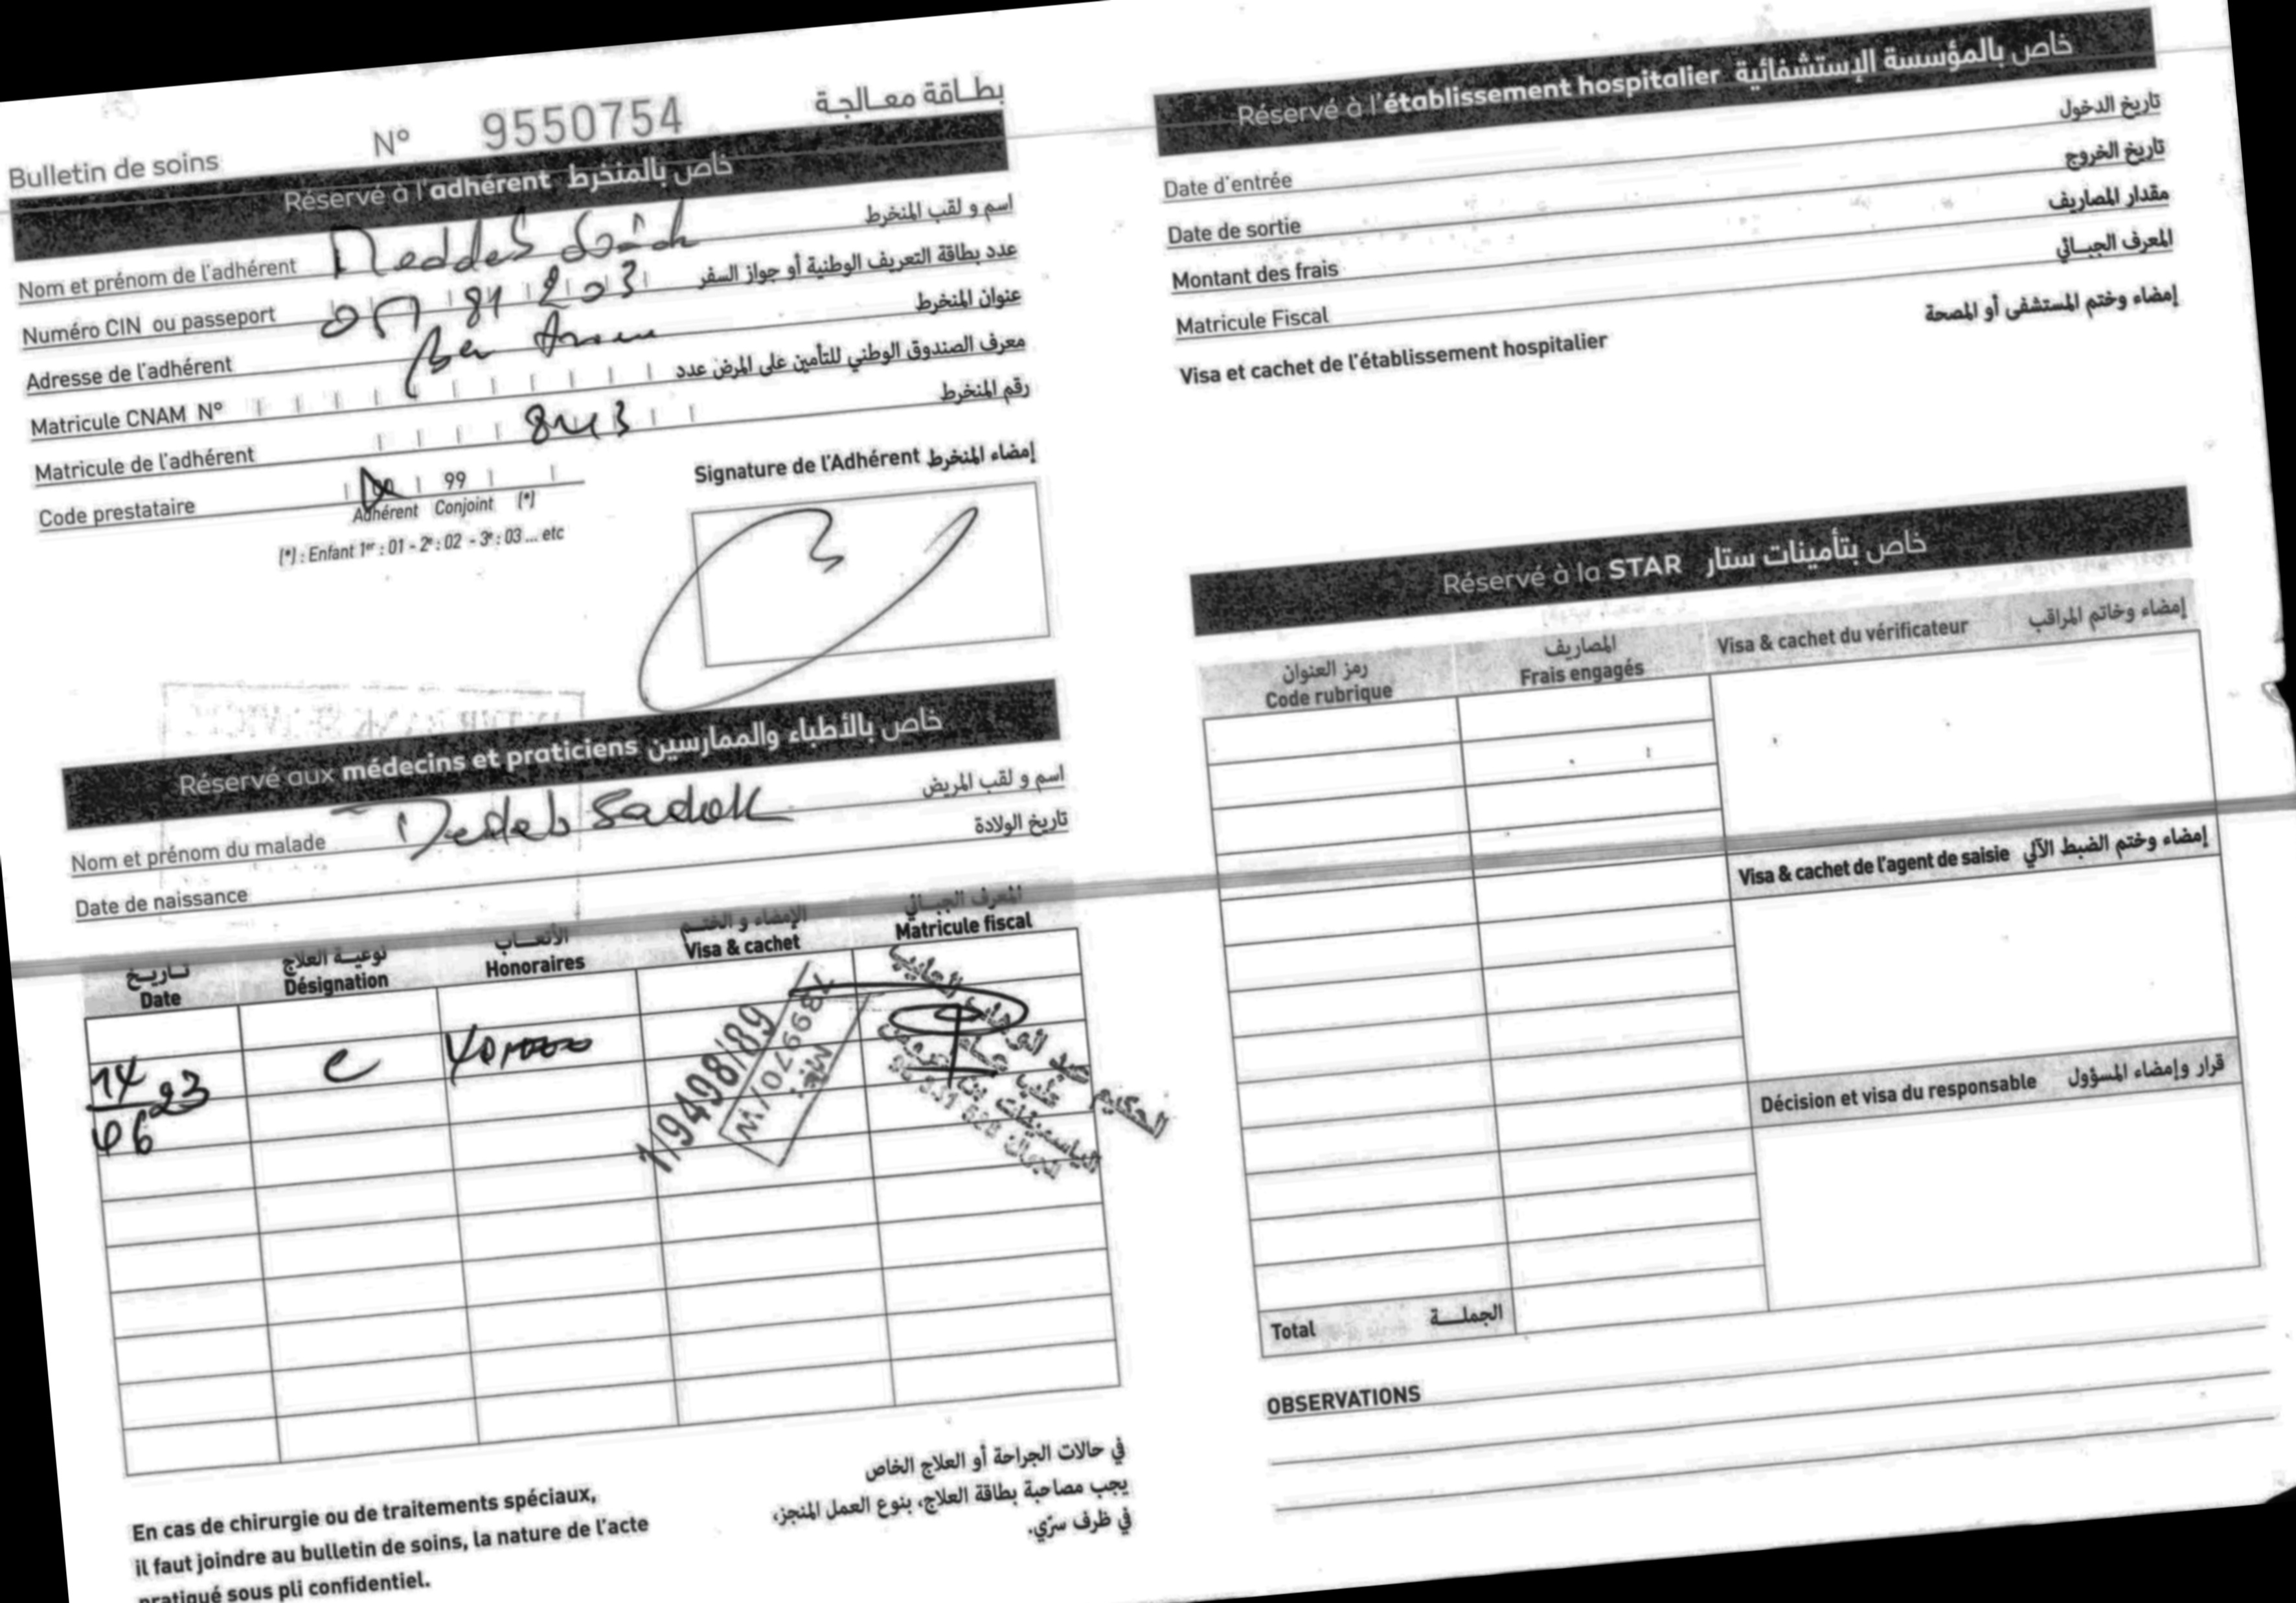 Bulletin de soins N° 9550754 بطاقة معالجة
Réservé à l'adhérent خاص بالمنخرط
Nom et prénom de l'adhérent اسم و لقب المنخرط
Numéro CIN ou passeport عدد بطاقة التعريف الوطنية أو جواز السفر
Adresse de l'adhérent عنوان المنخرط
Matricule CNAM N° معرف الصندوق الوطني للتأمين على المرض عدد
Matricule de l'adhérent رقم المنخرط
Code prestataire 00 99
Adhérent Conjoint (*)
(*) : Enfant 1er : 01 - 2e : 02 - 3e : 03 ... etc
Signature de l'Adhérent إمضاء المنخرط
Réservé aux médecins et praticiens خاص بالأطباء والممارسين
Nom et prénom du malade Deddeb Sadok اسم و لقب المريض
Date de naissance تاريخ الولادة
تاريخ نوعية العلاج الأتعاب الإمضاء و الختم المعرف الجبائي
Date Désignation Honoraires Visa & cachet Matricule fiscal
14/06 23 C
1/9408/89
En cas de chirurgie ou de traitements spéciaux,
il faut joindre au bulletin de soins, la nature de l'acte
pratiqué sous pli confidentiel.
في حالات الجراحة أو العلاج الخاص
يجب مصاحبة بطاقة العلاج، بنوع العمل المنجز،
في ظرف سرّي.
Réservé à l'établissement hospitalier خاص بالمؤسسة الإستشفائية
Date d'entrée تاريخ الدخول
Date de sortie تاريخ الخروج
Montant des frais مقدار المصاريف
Matricule Fiscal المعرف الجبائي
Visa et cachet de l'établissement hospitalier إمضاء وختم المستشفى أو المصحة
Réservé à la STAR خاص بتأمينات ستار
رمز العنوان المصاريف
Code rubrique Frais engagés Visa & cachet du vérificateur إمضاء وخاتم المراقب
Visa & cachet de l'agent de saisie إمضاء وختم الضبط الآلي
Décision et visa du responsable قرار وإمضاء المسؤول
Total الجملة
OBSERVATIONS